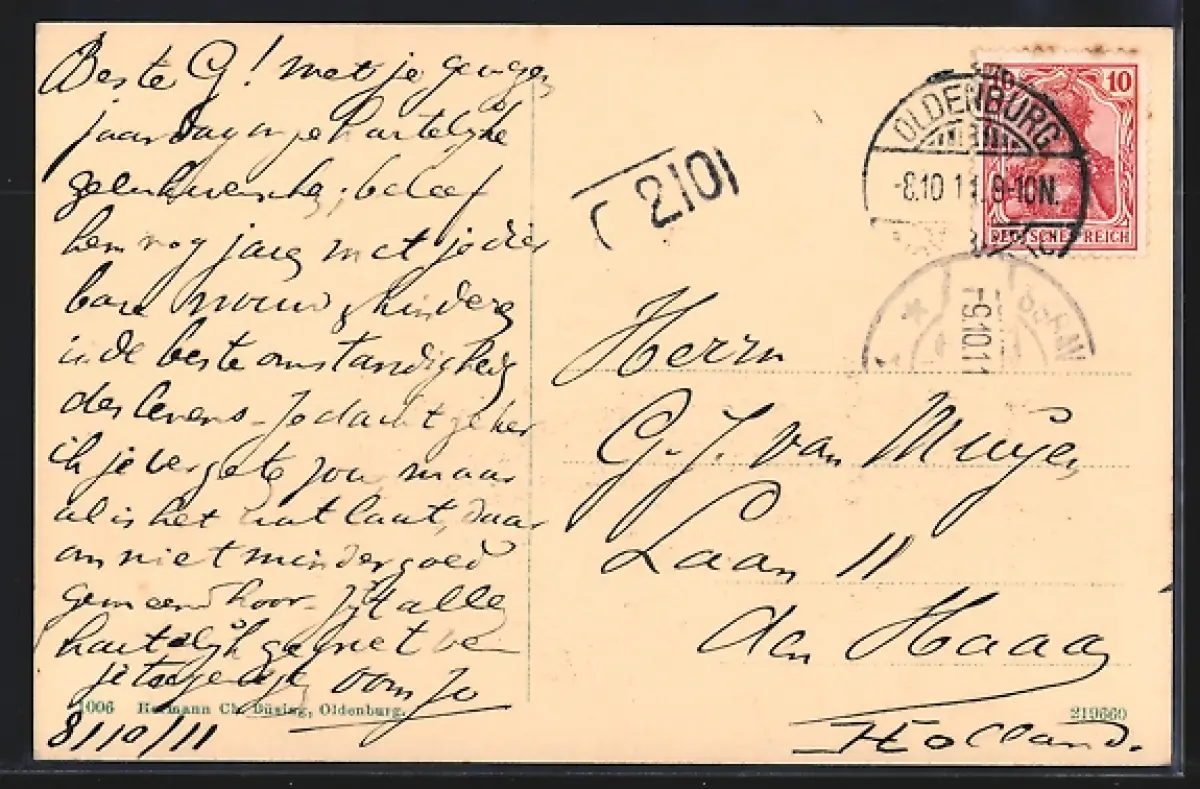 Beste G! met je
jaardag en je hartelijke
gelukwensch; beleef
hem nog jaren met je dier
bare vrouw & kinderen
in de beste omstandigheid
des levens - Je dacht zeker
ik je vergete zou, maar
al is het wat laat, daar
om niet minder goed
gemeend hoor. Zijt allen
hartelijk gegroet van
je oom Jo
8/10/11
1006 Hermann Ch. Büsing, Oldenburg.
219660
10
DEUTSCHES REICH
OLDENBURG
-8.10.11.9-10N.
2101
-9.10.11
Herrn
G. J. van
Laan 11
den Haag
Holland.